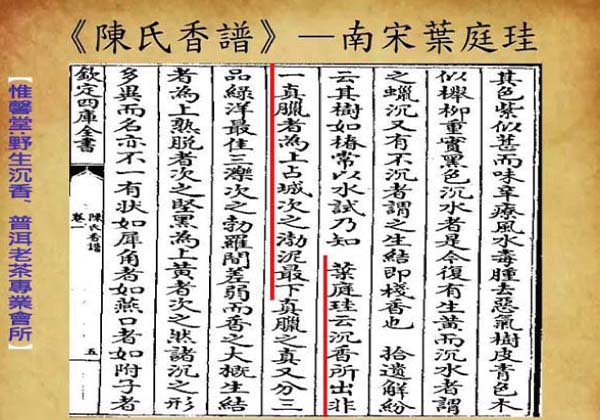 《陳氏香譜》—南宋葉庭珪
其色紫似葚而味辛療風水毒腫去惡氣樹皮青色木
似櫸柳重實黑色沉水者是今復有生黄而沉水者謂
之蠟沉又有不沉者謂之生結即棧香也 拾遺解紛
云其樹如椿常以水試乃知 葉庭珪云沉香所出非
一真臘者為上占城次之渤泥最下真臘之真又分三
品綠洋最佳三濼次之勃羅間差弱而香之大概生結
者為上熟脱者次之堅黑為上黄者次之然諸沉之形
多異而名亦不一有狀如犀角者如燕口者如附子者
欽定四庫全書
陳氏香譜
卷一
五
【惟馨堂:野生沉香、普洱老茶專業會所】